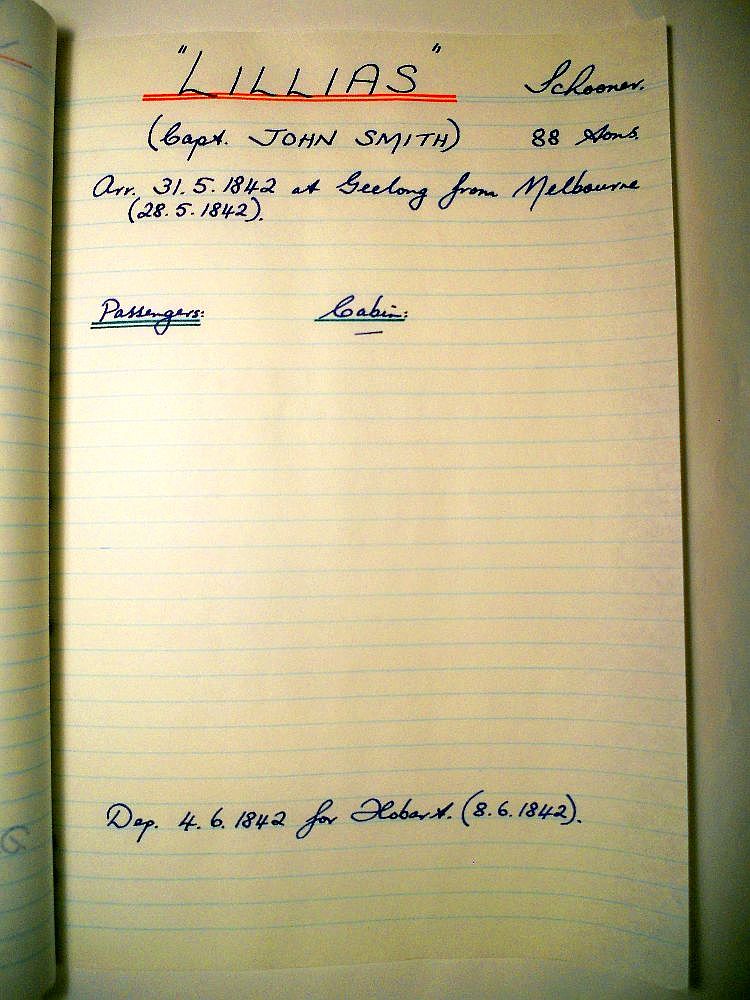 "LILLIAS" Schooner.
(Capt. JOHN SMITH) 88 tons.
Arr. 31.5.1842 at Geelong from Melbourne
(28.5.1842).
Passengers: Cabin:
—
Dep. 4.6.1842 for Hobart. (8.6.1842).